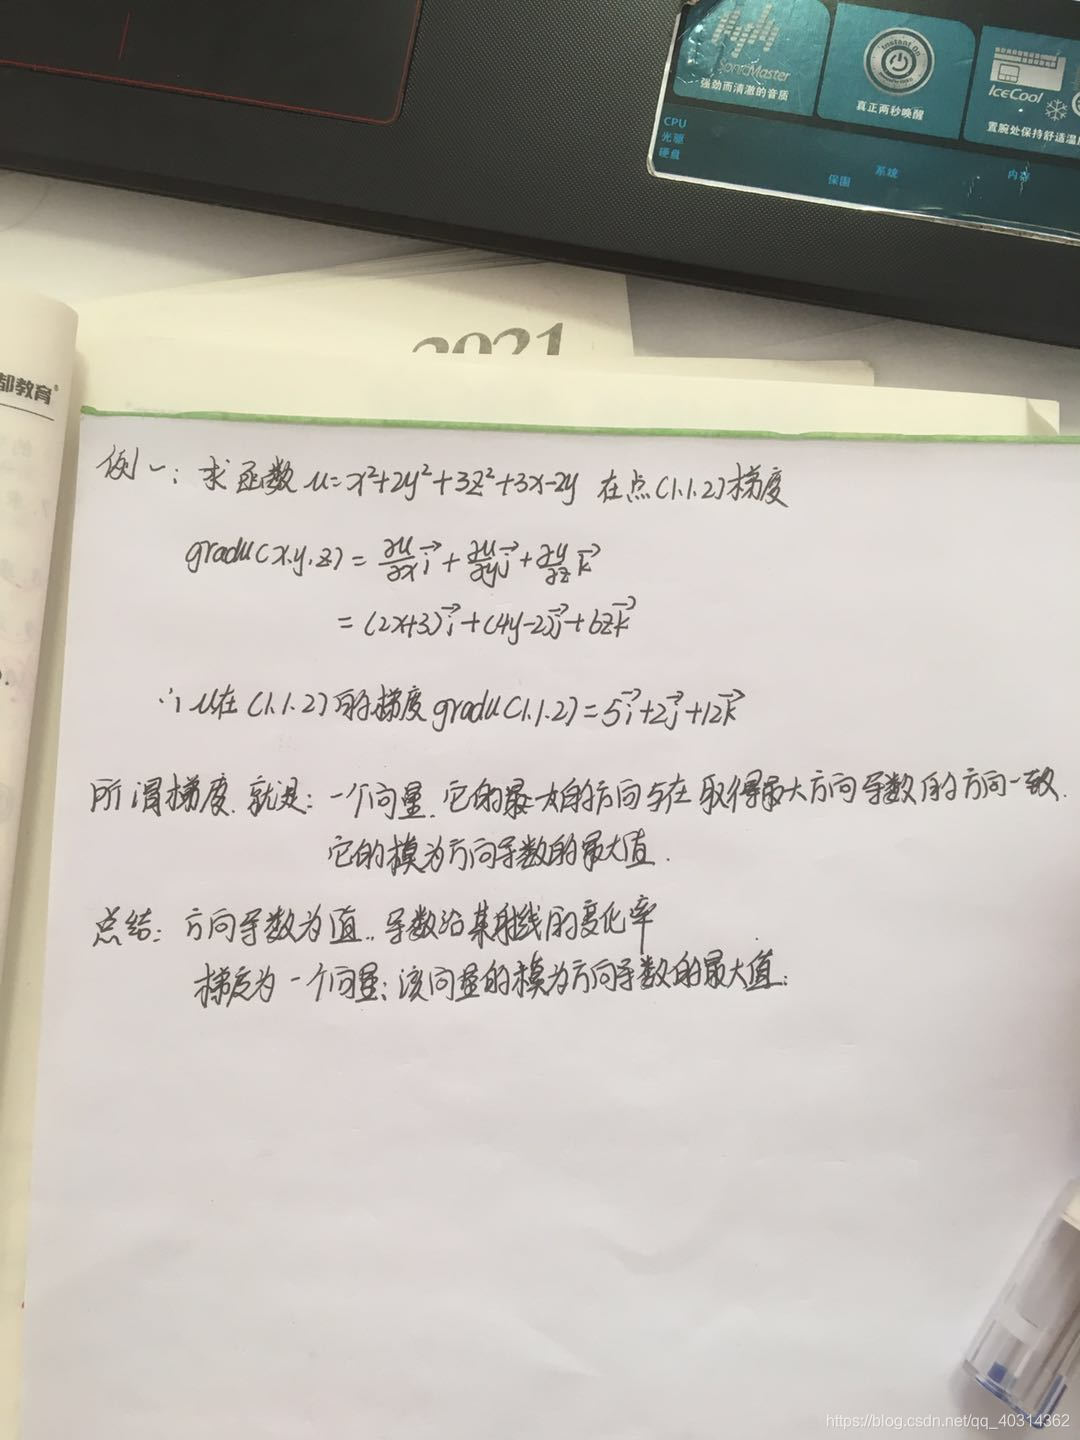 SonicMaster
强劲而清澈的音质
Instant On
真正两秒唤醒
IceCool
置腕处保持舒适温
CPU
光驱
硬盘
保固
系统
内存
2021
都教育
例一: 求函数 u=x²+2y²+3z²+3x-2y 在点(1.1.2)梯度
gradu(x.y.z) = ∂u/∂x i⃗ + ∂u/∂y j⃗ + ∂u/∂z k⃗
= (2x+3)i⃗ + (4y-2)j⃗ + 6zk⃗
∴ u在(1.1.2)的梯度gradu(1.1.2) = 5i⃗+2j⃗+12k⃗
所谓梯度.就是: 一个向量.它的最大的方向与在取得最大方向导数的方向一致.
它的模为方向导数的最大值.
总结: 方向导数为值..导数沿某射线的变化率
梯度为一个向量;该向量的模为方向导数的最大值;
https://blog.csdn.net/qq_40314362